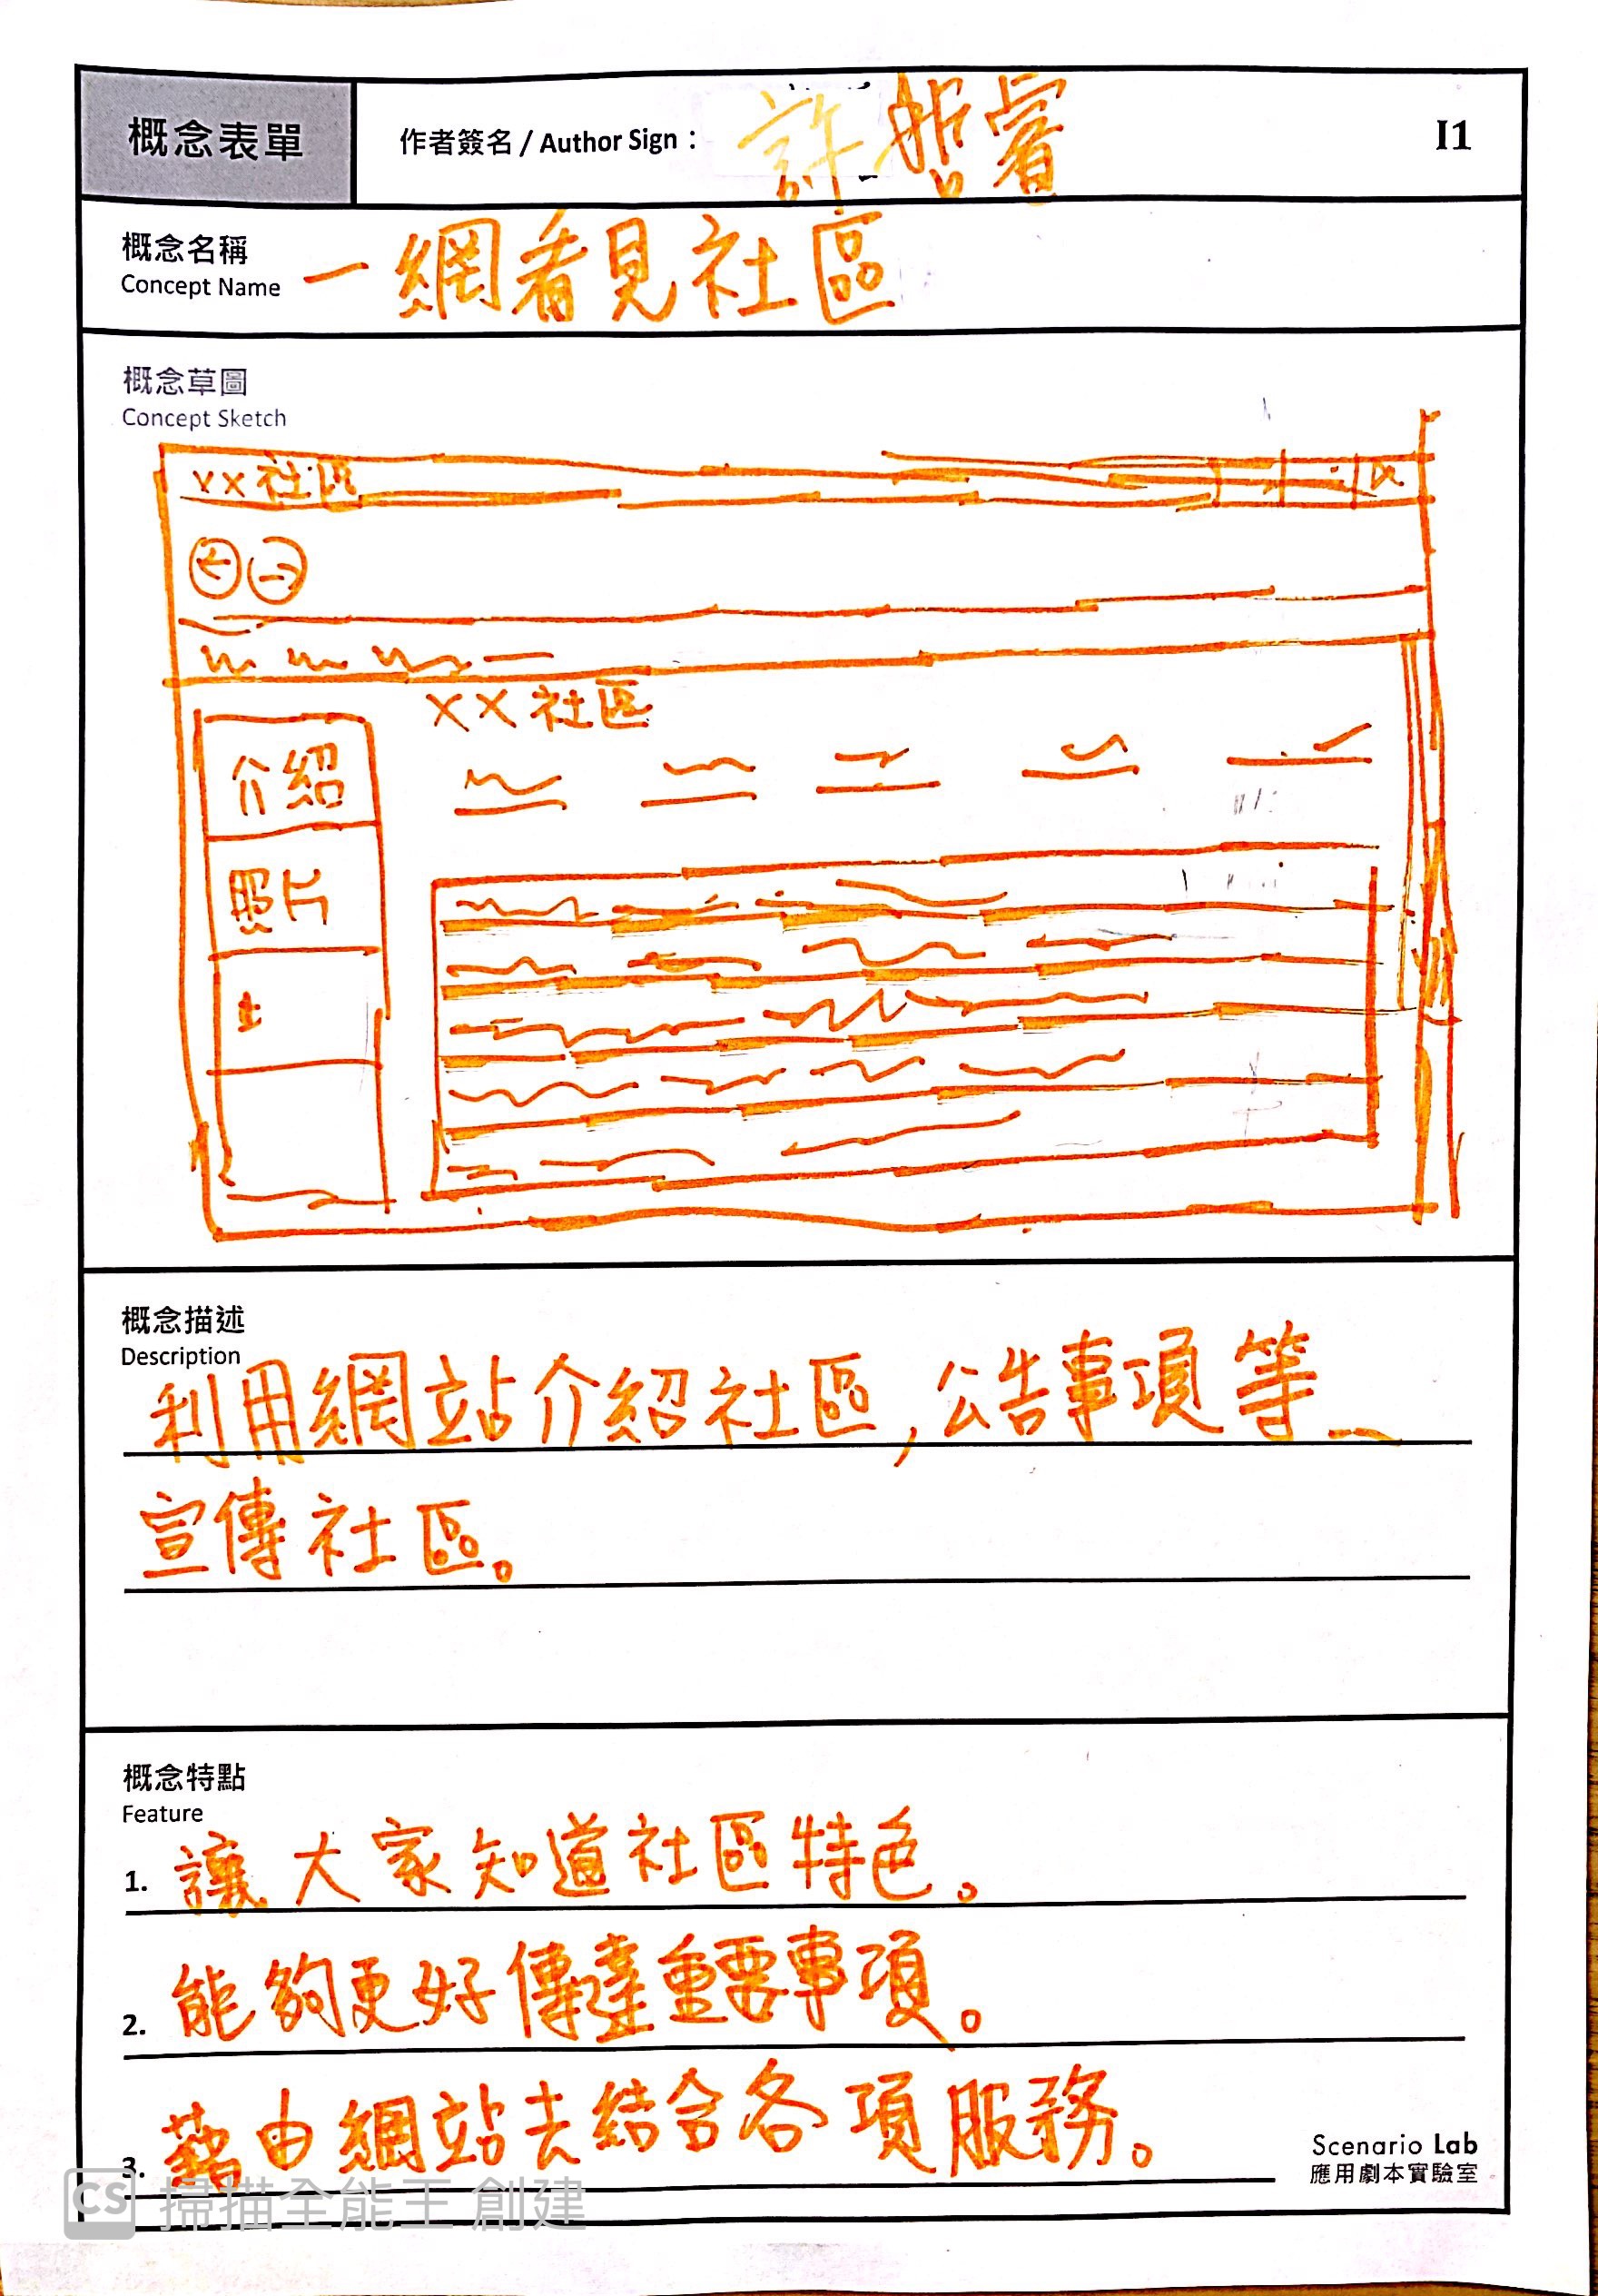 概念表單
作者簽名 / Author Sign：許哲睿
I1
概念名稱
Concept Name
一網看見社區
概念草圖
Concept Sketch
xx社区
xx社區
介紹
照片
概念描述
Description
利用網站介紹社區,公告事項等
宣傳社區。
概念特點
Feature
1. 讓大家知道社區特色。
2. 能夠更好傳達重要事項。
3. 藉由網站去結合各項服務。
Scenario Lab
應用劇本實驗室
CS 掃描全能王 創建